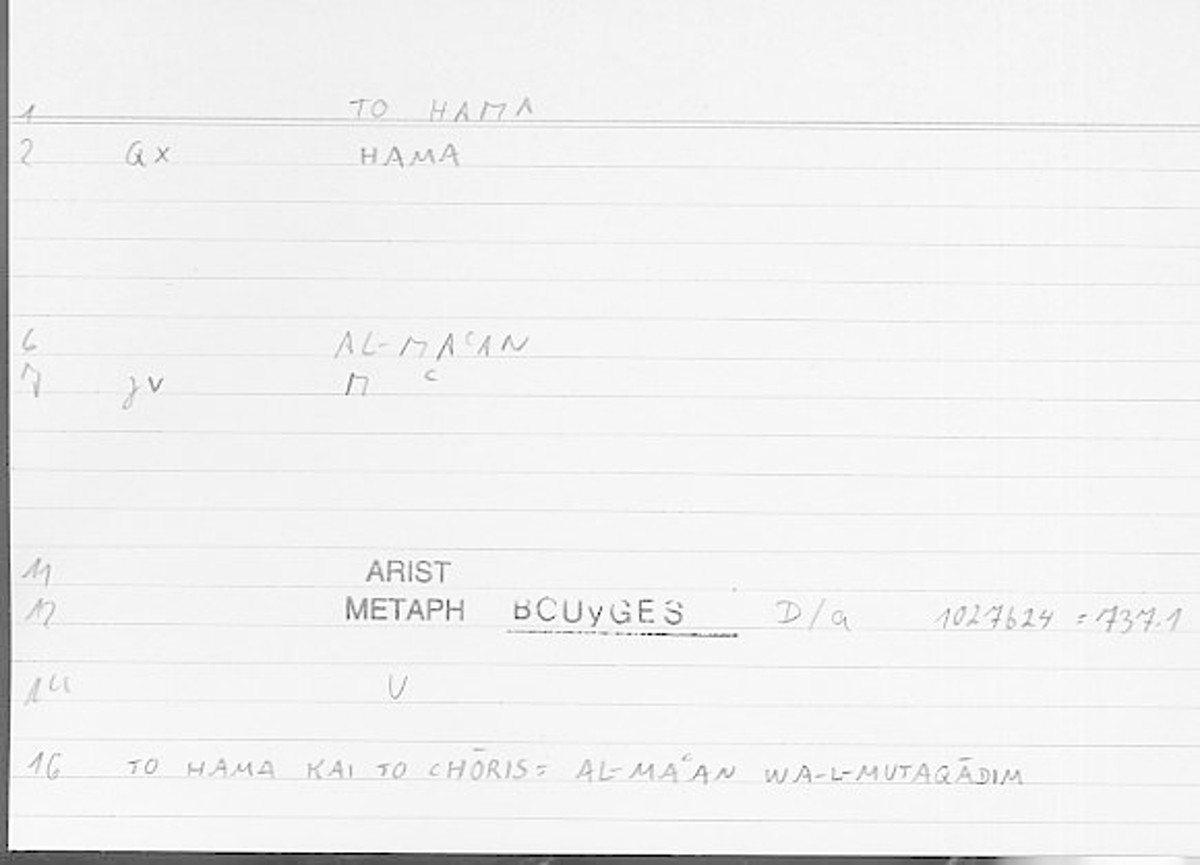 1 TO HAMA
2 Qx HAMA
6 AL-MAʿAN
7 jv M ʿ
11 ARIST
12 METAPH BOUyGES D/a 1027b24 = 737.1
14 V
16 TO HAMA KAI TO CHŌRIS = AL-MAʿAN WA-L-MUTAQĀDIM